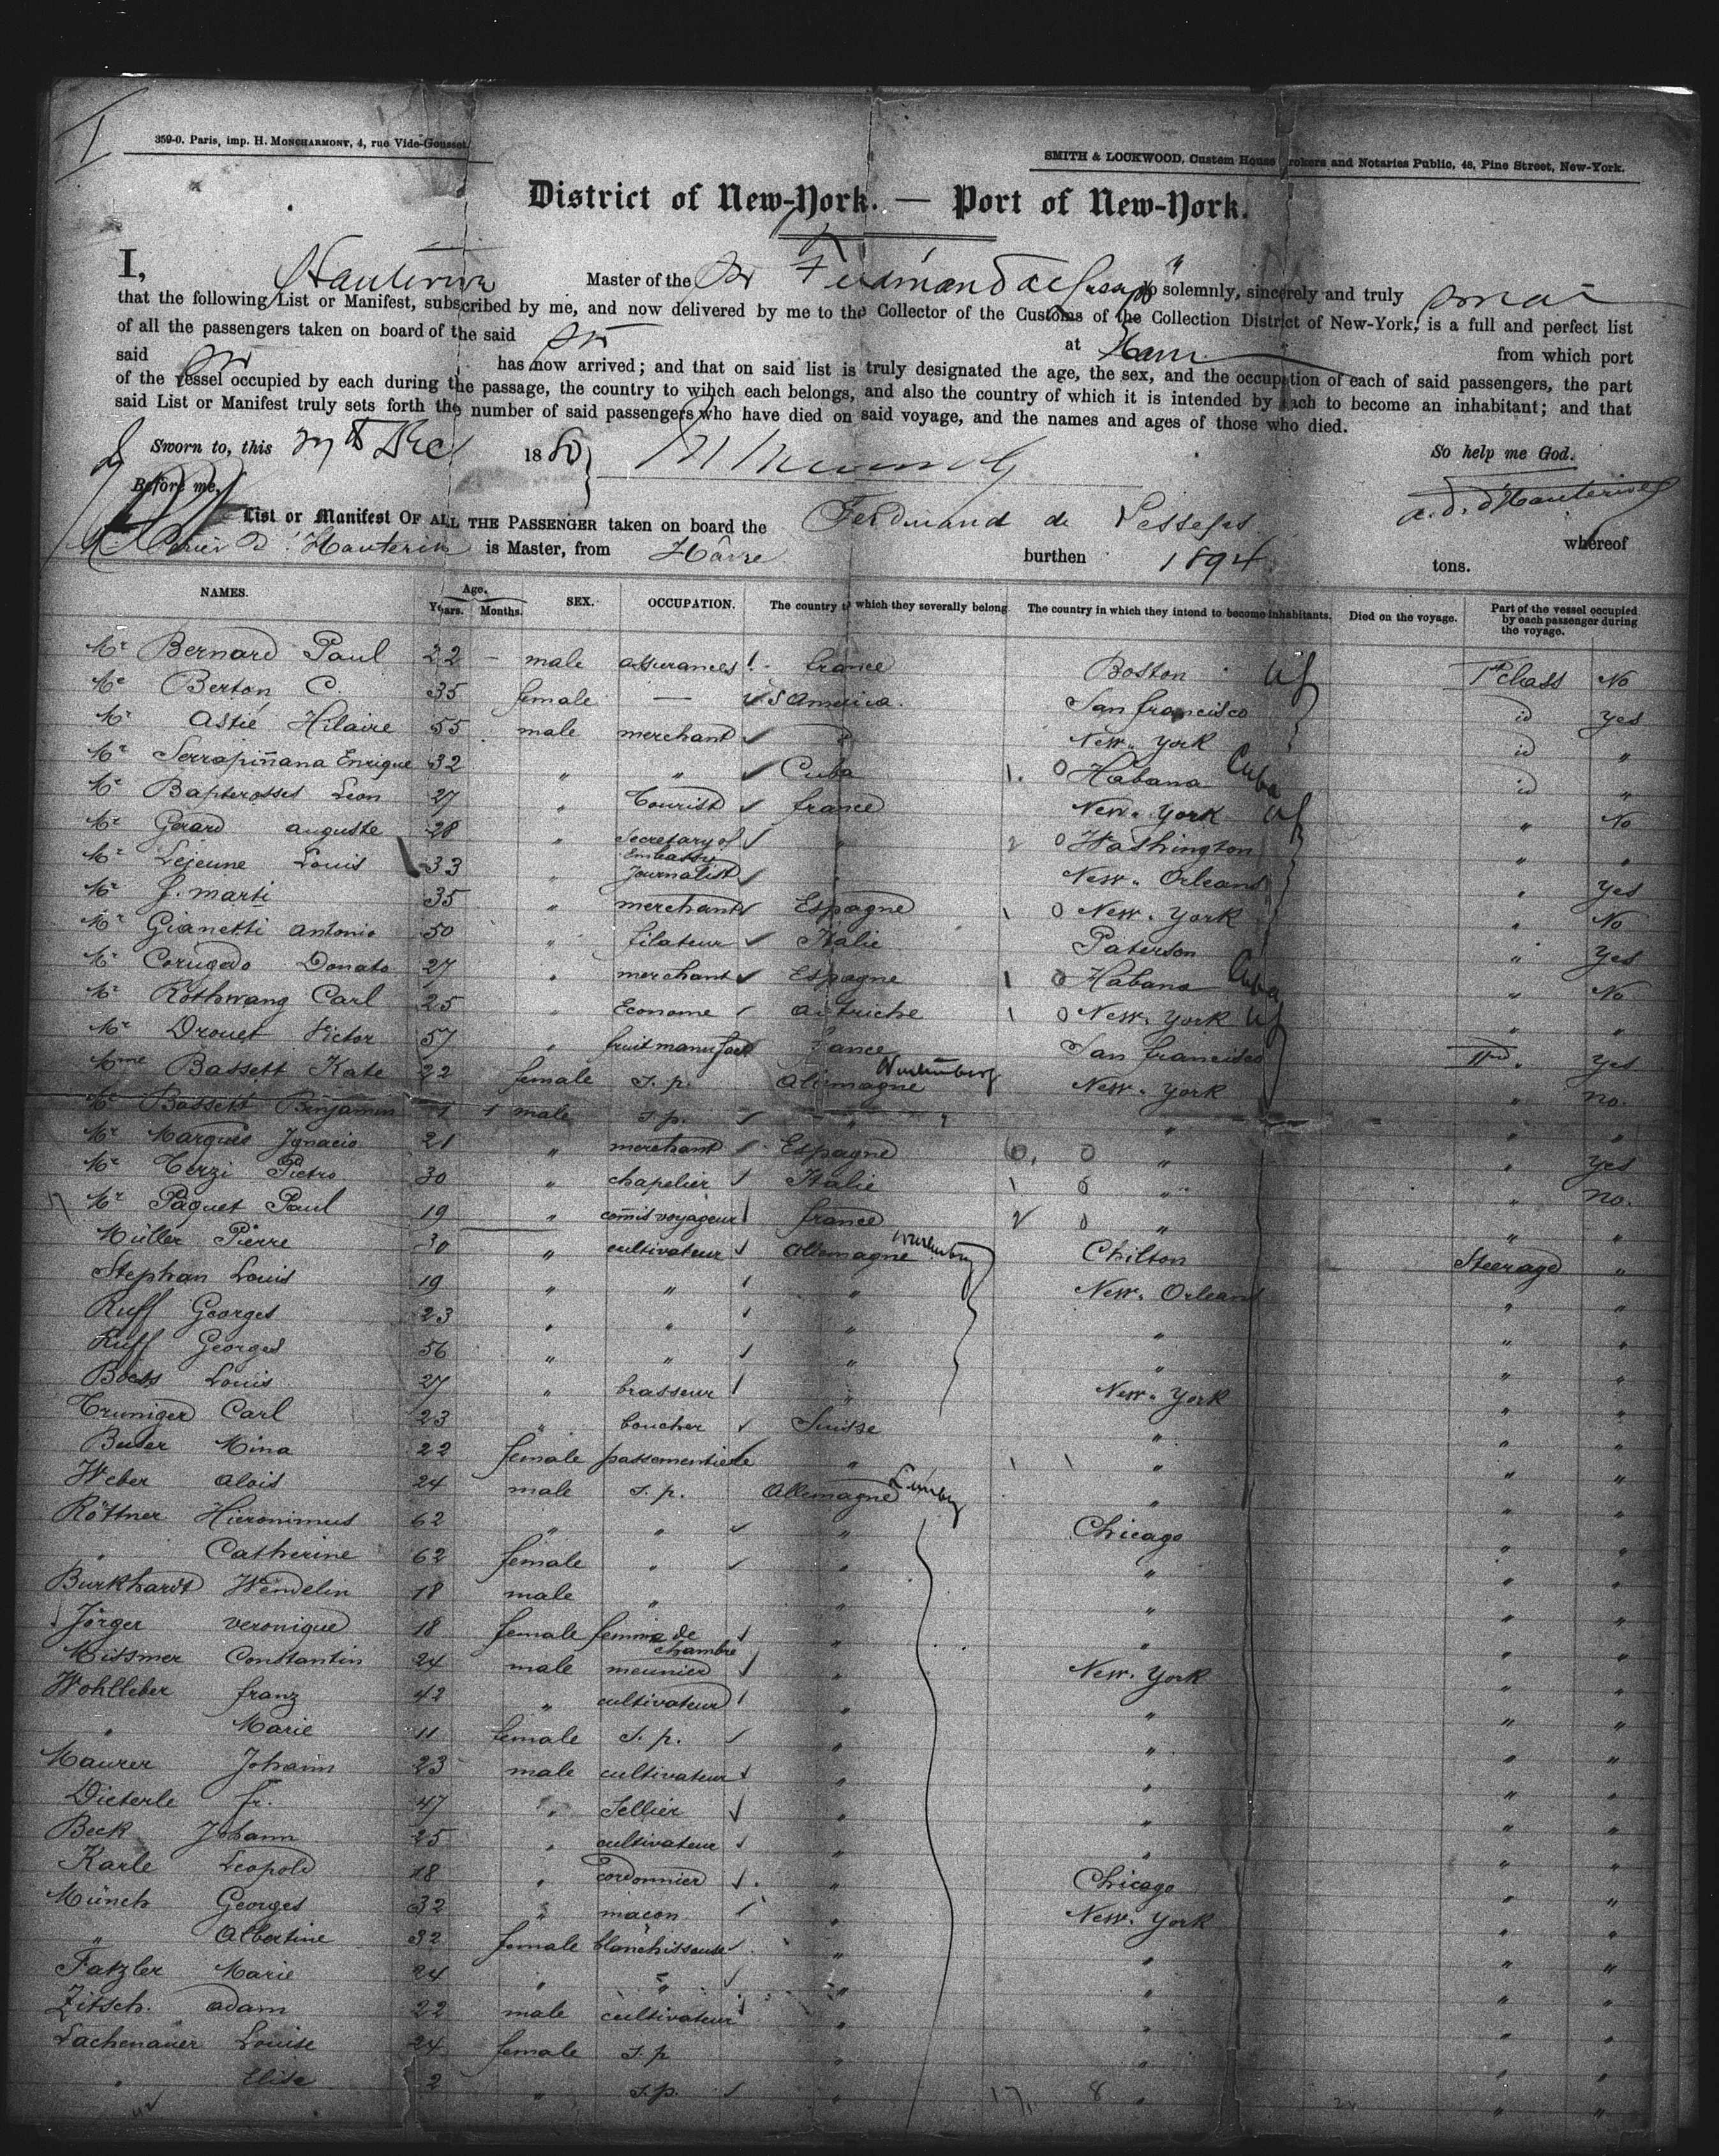 I
359-0. Paris, imp. H. MONCHARMONT, 4, rue Vide-Gousset.
SMITH & LOCKWOOD, Custom House Brokers and Notaries Public, 48, Pine Street, New-York.
District of New-York. — Port of New-York.
I, Hauterive Master of the Str Ferdinand de Lesseps do solemnly, sincerely and truly swear
that the following List or Manifest, subscribed by me, and now delivered by me to the Collector of the Customs of the Collection District of New-York, is a full and perfect list
of all the passengers taken on board of the said Str at Havre from which port
said Str has now arrived; and that on said list is truly designated the age, the sex, and the occupation of each of said passengers, the part
of the vessel occupied by each during the passage, the country to wihch each belongs, and also the country of which it is intended by each to become an inhabitant; and that
said List or Manifest truly sets forth the number of said passengers who have died on said voyage, and the names and ages of those who died.
Sworn to, this Dec 1880 So help me God.
Before me, a. d. d'Hauterive
List or Manifest OF ALL THE PASSENGER taken on board the Ferdinand de Lesseps whereof
d'Hauterive is Master, from Hâvre burthen 1894 tons.
NAMES. Age. Years. Months. SEX. OCCUPATION. The country to which they severally belong The country in which they intend to become inhabitants. Died on the voyage. Part of the vessel occupied by each passenger during the voyage.
Mr Bernard Paul 22 - male assurances france Boston US 1st class No
Me Berton C. 35 female — S America. San francisco id yes
Mr Astié Hilaire 55 male merchant " New. York id "
Mr Serrapiñana Enrique 32 " " Cuba 1. 0 Habana Cuba id "
Mr Bapterosses Leon 27 " Tourist france New. York US " No
Mr Gerard auguste 28 " Secretary of Embassy " 2 0 Washington " "
Mr Lejeune Louis 33 " Journalist " New. Orleans " yes
Mr J. marti 35 " merchant Espagne 1 0 New. York " No
Mr Gianetti antonio 50 " filateur Italie Paterson " yes
Mr Corugedo Donato 27 " merchant Espagne 1 0 Habana Cuba " No
Mr Rothwang Carl 25 " Econome autriche 1 0 New. York US " "
Mr Drouet Victor 57 " fruit manufact france San francisco IInd " yes
Mme Bassett Kate 22 female s. p. allemagne Wurtemberg New. York " no.
Mr Bassett Benjamin 1 1 male s. p. " " " "
Mr Marques Ignacio 21 " merchant Espagne 6. 0 " " yes
Mr Terzi Pietro 30 " chapelier Italie 1 0 " " no.
Mr Paquet Paul 19 " comis voyageur france 2 0 " " "
Müller Pierre 30 " cultivateur allemagne Wurtemberg Chilton Steerage "
Stephan Louis 19 " " " New. Orleans " "
Ruff Georges 23 " " " " " "
Ruff Georges 56 " " " " " "
Boess Louis 27 " brasseur " New. York " "
Truniger Carl 23 " boucher Suisse " " "
Buser Mina 22 female passementiere " " " "
Weber alois 24 male s. p. Allemagne " " "
Röttner Hieronimus 62 " " " Chicago " "
" Catherine 62 female " " " " "
Burkhardt Wendelin 18 male " " " " "
Jörger veronique 18 female femme de chambre " " " "
Mitsmer Constantin 24 male meunier " New. York " "
Wohlleber franz 42 " cultivateur " " " "
" Marie 11 female s. p. " " " "
Maurer Johann 23 male cultivateur " " " "
Dieterle fr. 47 " Sellier " " " "
Beck Johann 25 " cultivateur " " " "
Karle Leopold 18 " cordonnier " Chicago " "
Münch Georges 32 " macon " New. York " "
" Albertine 32 female blanchisseuse " " " "
Fatzler Marie 24 " " " " " "
Zitsch. adam 22 male cultivateur " " " "
Lachenauer Louise 24 female s. p " " " "
" Elise 2 " s. p. " " " "
17 8